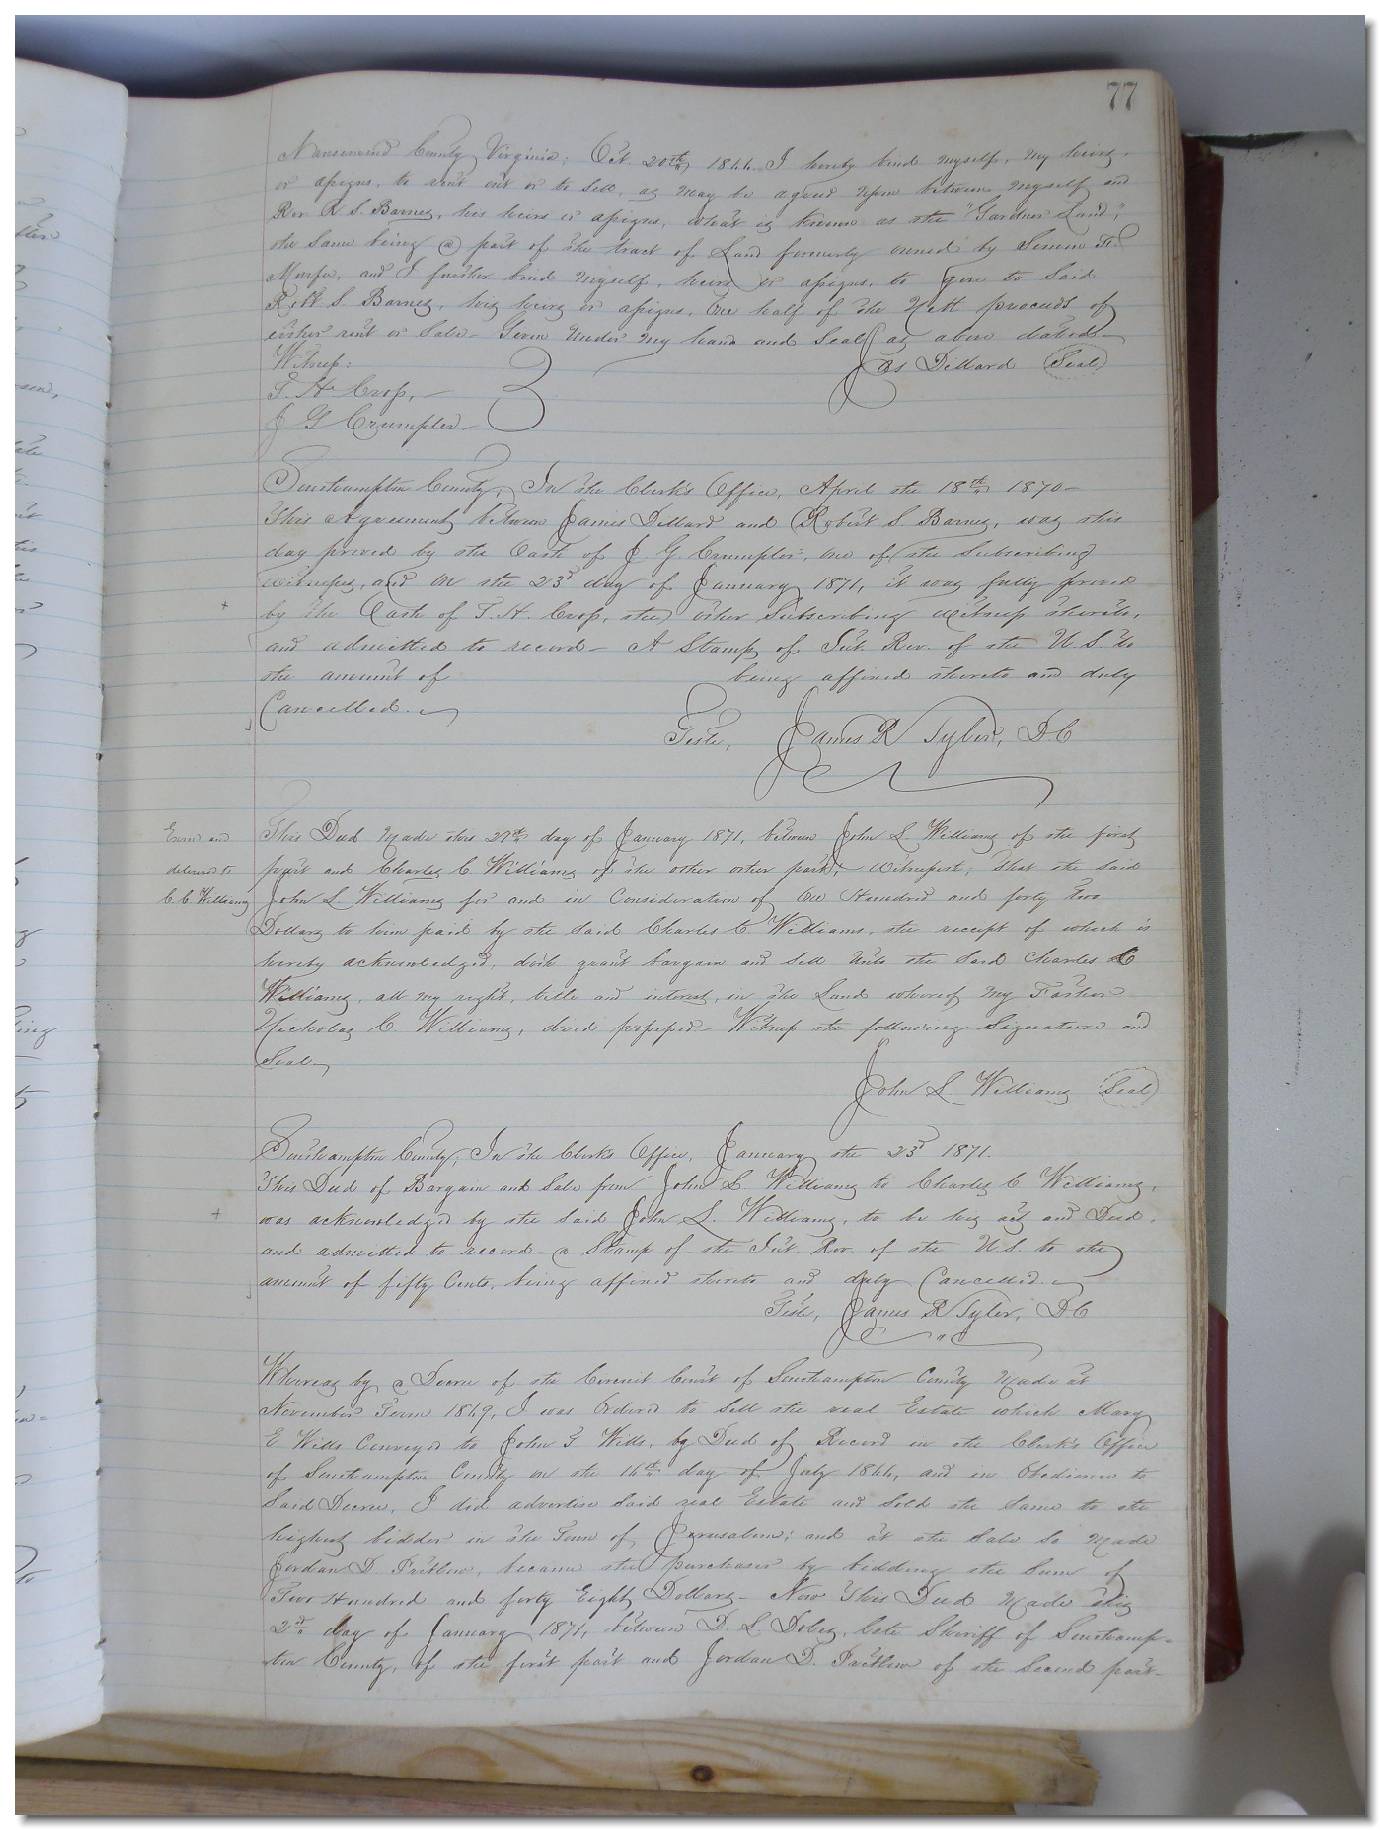 77
Nansemond County Virginia; Oct. 20th 1866 I hereby bind myself, my heirs,
or assigns, to rent out or to sell, as may be agreed upon between myself and
Rev R. S. Barnes, his heirs or assigns, what is known as the "Gardner Land",
the same being a part of the tract of Land formerly owned by
and I further bind myself, heirs or assigns, to give to said
Robt S. Barnes, his heirs or assigns, One half of the Nett proceeds of
either rent or sale - Given under my hand and Seal as above dated -
Witness: Jas Dillard (Seal)
T. H. Cross, -
J G Crumpler -
Southampton County, In the Clerk's Office, April the 18th 1870 -
This Agreement between James Dillard and Robert S. Barnes, was this
day proved by the Oath of J. G. Crumpler, one of the Subscribing
witnesses, and on the 23d day of January 1871, it was fully proved
by the Oath of T. H. Cross, the other Subscribing witness thereto,
and admitted to record - A Stamp of Int. Rev. of the U. S. to
the amount of being affixed thereto and duly
Cancelled.
Teste, James R Tyler, D C
Exmd and
delivered to
C. C. Williams
This Deed made this 27th day of January 1871, between John L Williams of the first
part and Charles C. Williams of the other other part; witnesseth, that the said
John L Williams for and in Consideration of One Hundred and forty two
Dollars to him paid by the said Charles C Williams, the receipt of which is
hereby acknowledged, doth grant bargain and sell unto the said Charles C
Williams, all my right, title and interest, in the Land whereof my Father
Nicholas C Williams, died possessed - Witness the following Signature and
Seal -
John L Williams (Seal)
Southampton County, In the Clerk's Office, January the 23d 1871.
This Deed of Bargain and Sale from John L. Williams to Charles C Williams,
was acknowledged by the said John L. Williams, to be his act and Deed,
and admitted to record - a Stamp of the Int. Rev. of the U. S. to the
amount of fifty Cents, being affixed thereto and duly Cancelled.
Teste, James R Tyler, D C
Whereas by a Decree of the Circuit Court of Southampton County made at
November Term 1869, I was Ordered to sell the real Estate which Mary
E Wills Conveyed to John T Wills, by Deed of Record in the Clerk's Office
of Southampton County on the 16th day of July 1866, and in Obedience to
said Decree, I did advertise said real Estate and sold the same to the
highest bidder in the Town of Jerusalem; and at the sale so made
Jordan D. Pretlow, became the purchaser by bidding the sum of
Two Hundred and forty Eight Dollars - Now this Deed made this
2nd day of January 1871, between D. L. Dobey, late Sheriff of Southamp-
ton County, of the first part and Jordan D. Pretlow of the second part -